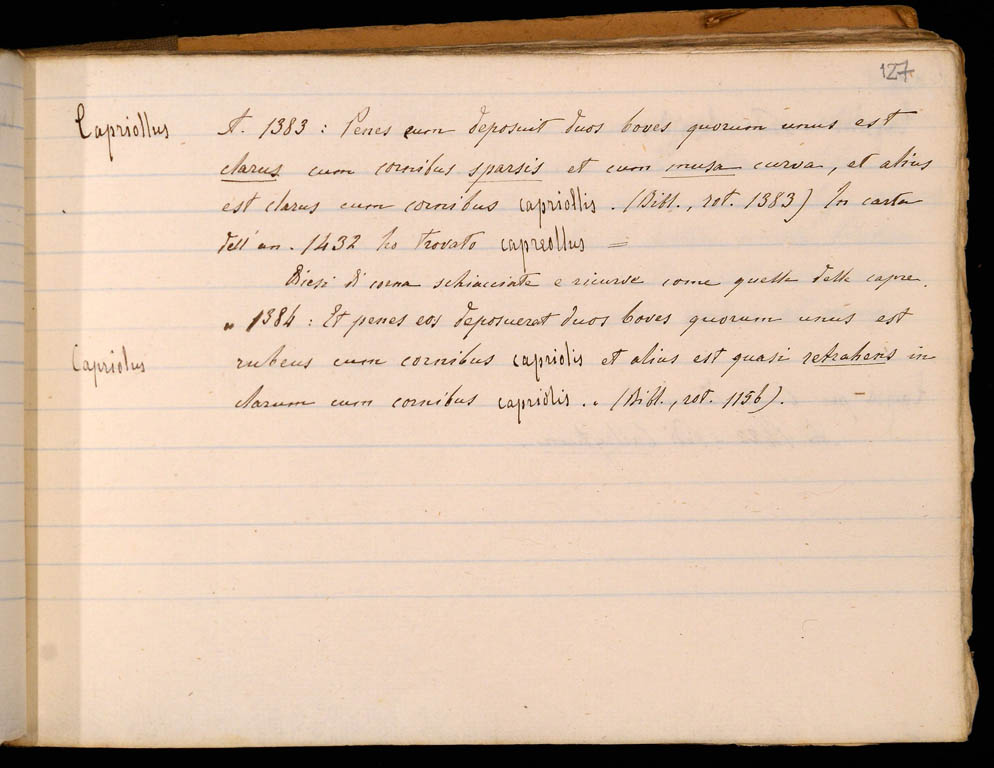 127
Capriollus A. 1383 : Penes eum deposuit duos boves quorum unus est
clarus cum cornibus sparsis et cum musa curva, et alius
est clarus cum cornibus capriollis. (Bibl., rot. 1383) In carta
dell'an. 1432 ho trovato capreollus =
Dicesi di corna schiacciate e ricurve come quelle delle capre.
" 1384 : Et penes eos deposueret duos boves quorum unus est
Capriolus rubeus cum cornibus capriolis et alius est quasi retrahens in
clarum cum cornibus capriolis. " (Bibl., rot. 1156).